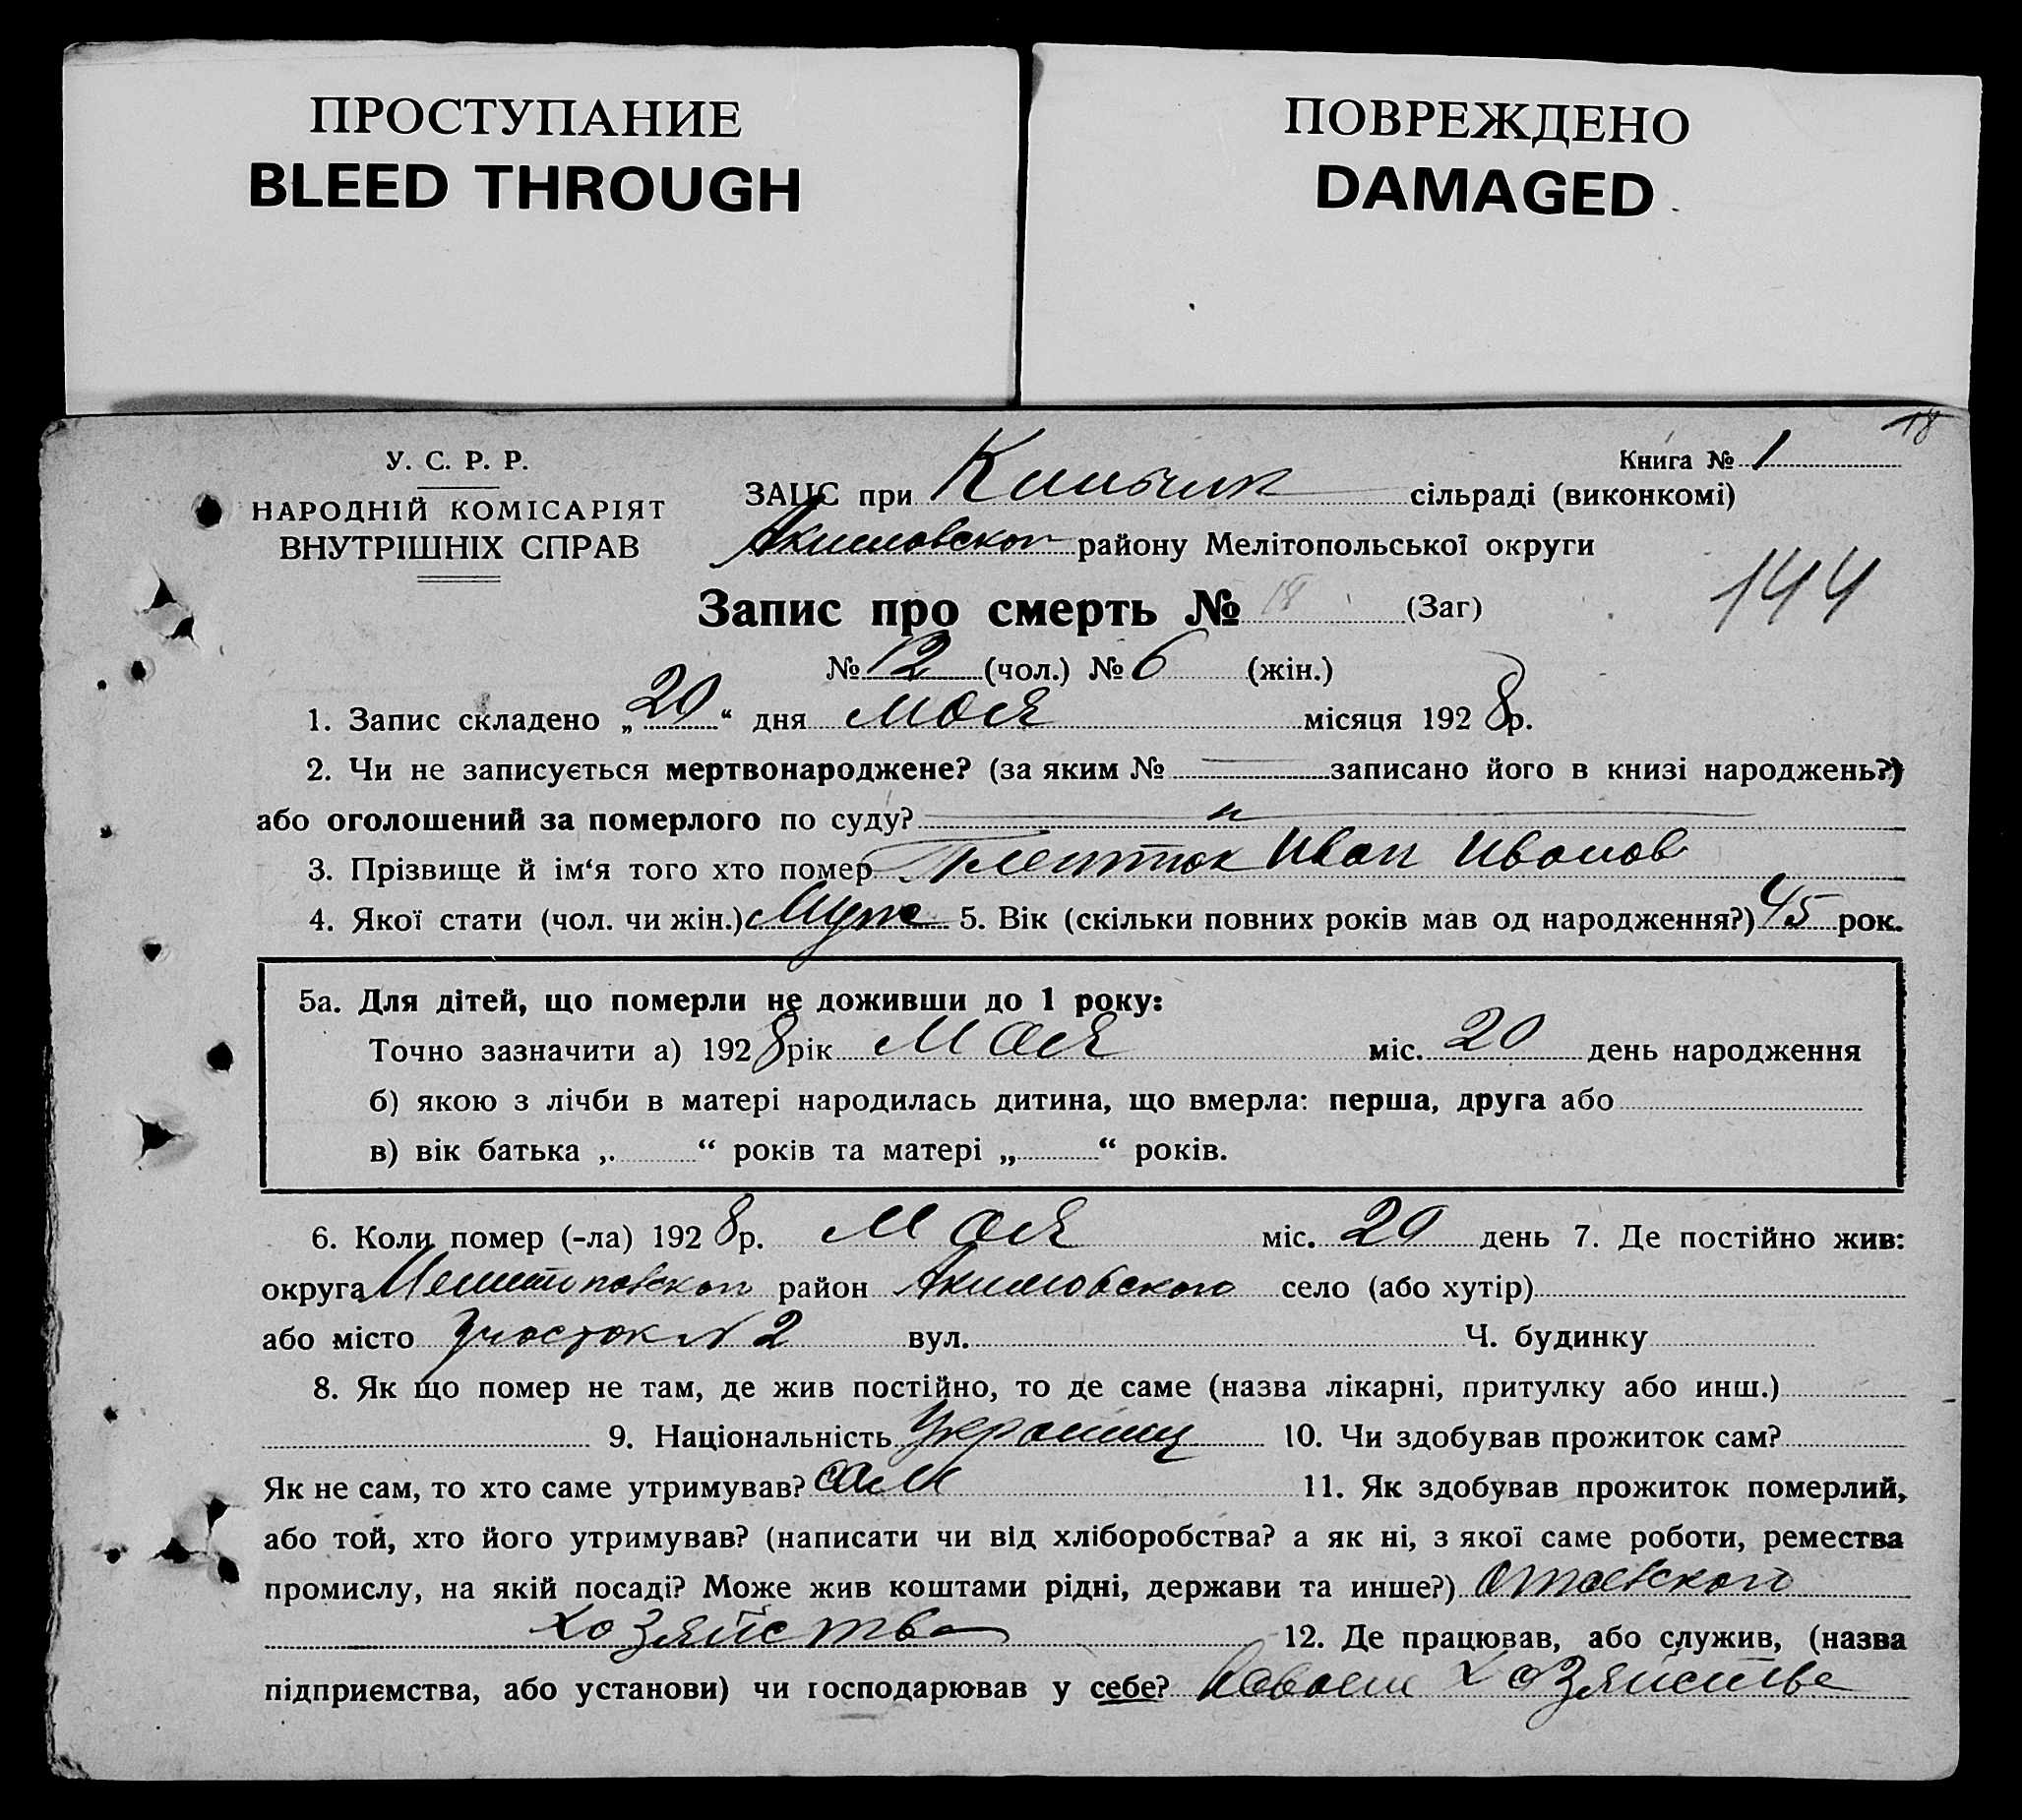 ПРОСТУПАНИЕ
BLEED THROUGH
ПОВРЕЖДЕНО
DAMAGED
18
У. С. Р. Р.
НАРОДНІЙ КОМІСАРІЯТ
ВНУТРІШНІХ СПРАВ
Книга № 1
ЗАЦС при сільраді (виконкомі)
Акимовског району Мелітопольської округи
144
Запис про смерть № 18 (Заг)
№ 12 (чол.) № 6 (жін.)
1. Запис складено „20“ дня мая місяця 1928р.
2. Чи не записується мертвонароджене? (за яким № — записано його в книзі народжень?)
або оголошений за померлого по суду? — „ —
3. Прізвище й ім‘я того хто помер Иван Иванов
4. Якої стати (чол. чи жін.) Муж 5. Вік (скільки повних років мав од народження?) 45 рок.
5а. Для дітей, що померли не доживши до 1 року:
Точно зазначити а) 1928 рік Мая міс. 20 день народження
б) якою з лічби в матері народилась дитина, що вмерла: перша, друга або
в) вік батька „ “ років та матері „ “ років.
6. Коли помер (-ла) 1928р. Мая міс. 20 день 7. Де постійно жив:
округа район Акимовского село (або хутір)
або місто Участок N 2 вул. Ч. будинку
8. Як що помер не там, де жив постійно, то де саме (назва лікарні, притулку або инш.)
9. Національність Украинец 10. Чи здобував прожиток сам?
Як не сам, то хто саме утримував? сам 11. Як здобував прожиток померлий,
або той, хто його утримував? (написати чи від хліборобства? а як ні, з якої саме роботи, ремества
промислу, на якій посаді? Може жив коштами рідні, держави та инше?)
хозяйства 12. Де працював, або служив, (назва
підприємства, або установи) чи господарював у себе? хозяйстве